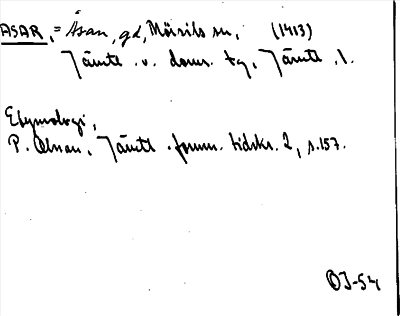 ASAR, = Åsan, gd, Mörsils sn, (1413)
Jämtl. v. doms. tg, Jämtl. l.
Etymologi,
P. Olsson, Jämtl. fornm. tidskr. 2, s.157.
OJ-54